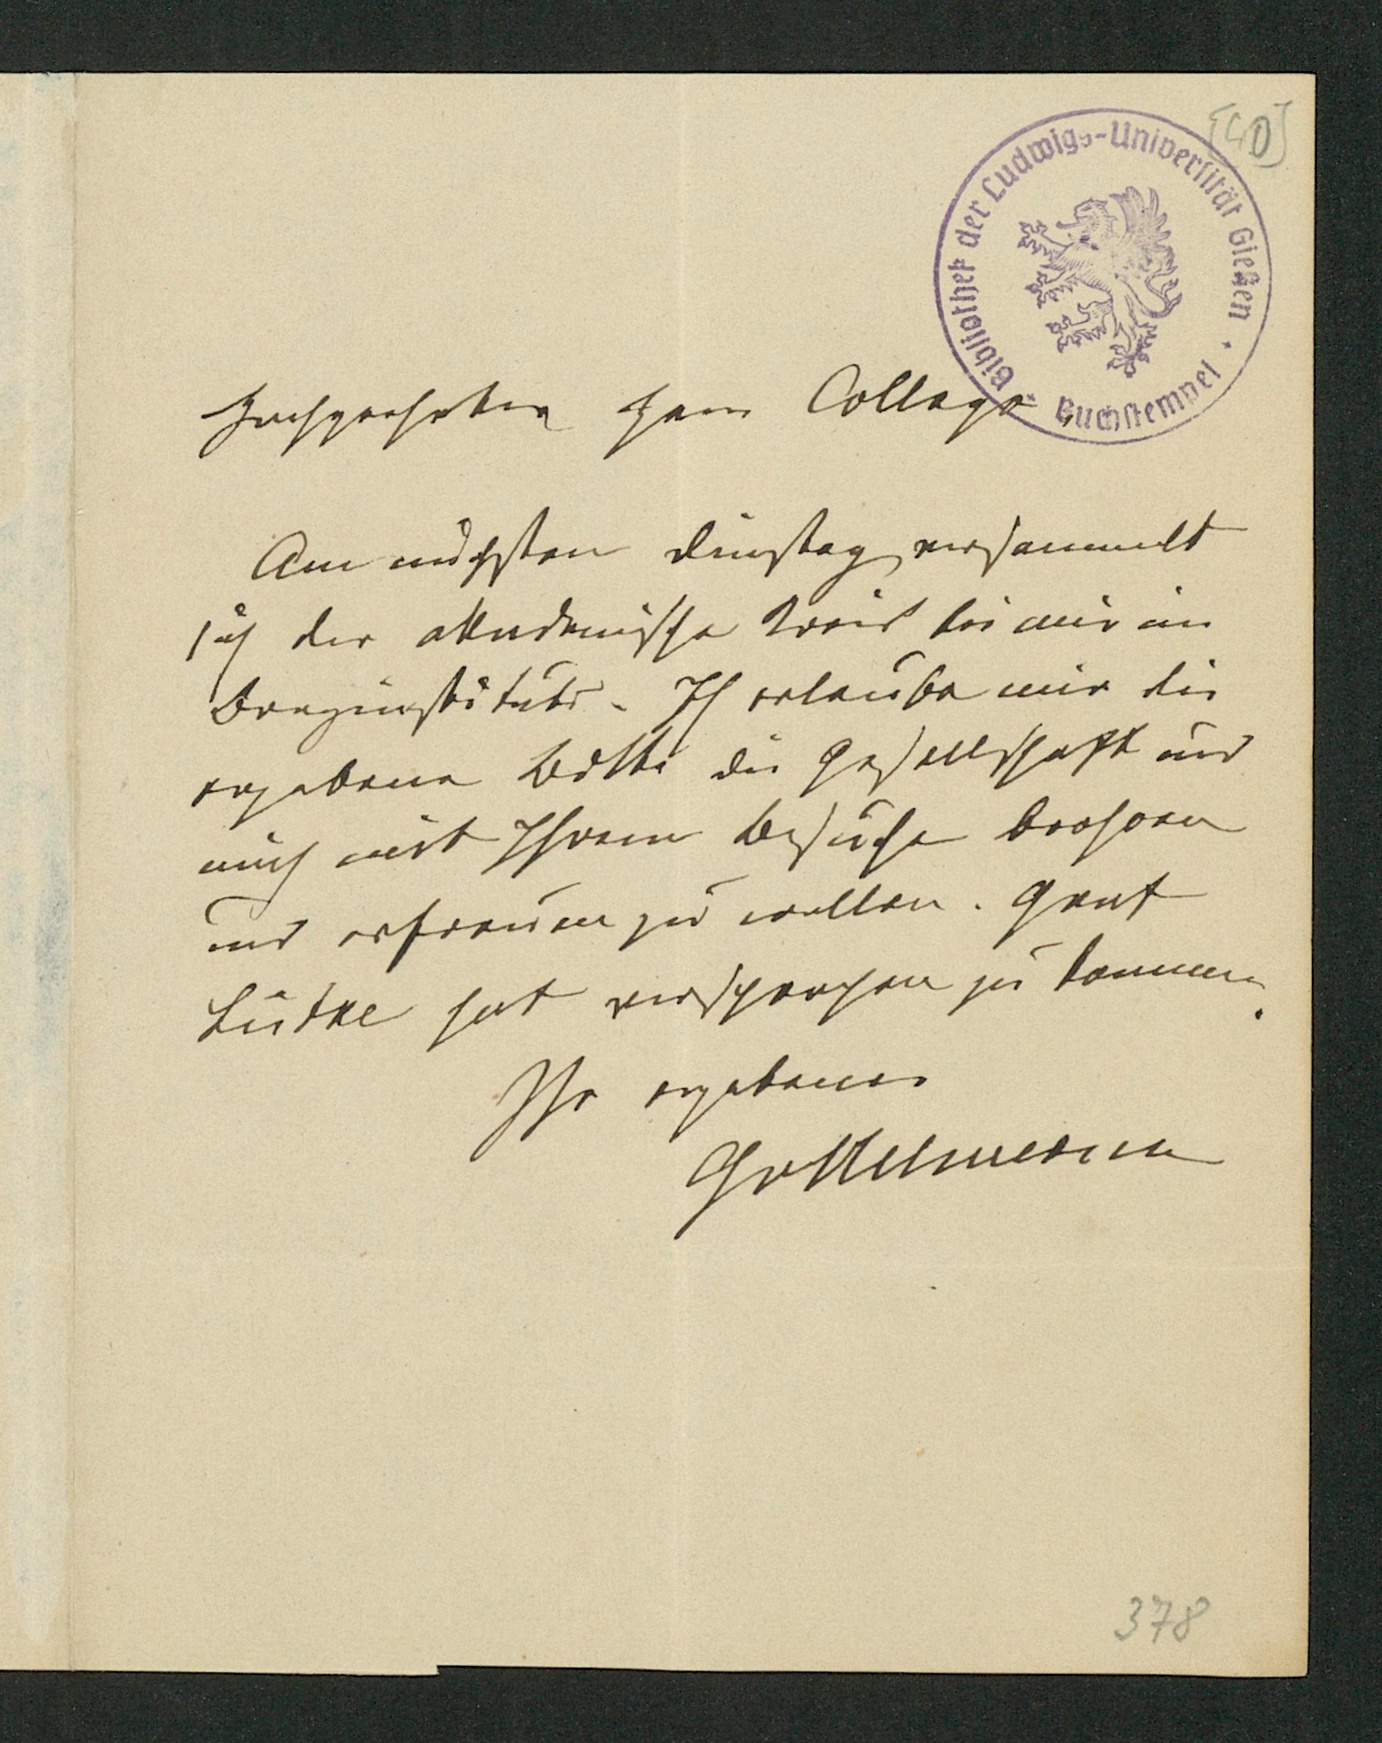 [40]
Bibliothek der Ludwigs-Universität Gießen
Buchstempel
Hochgeehrter Herr College
Am nächsten Dinstag versammelt
sich der akademische Kreis bei mir im
Berginstitute. Ich erlaube mir die
ergebene Bitte die Gesellschaft und
mich mit Ihrem Besuche beehren
und erfreuen zu wollen. Graf
Lüdke hat versprochen zu kommen.
Ihr ergebener
378